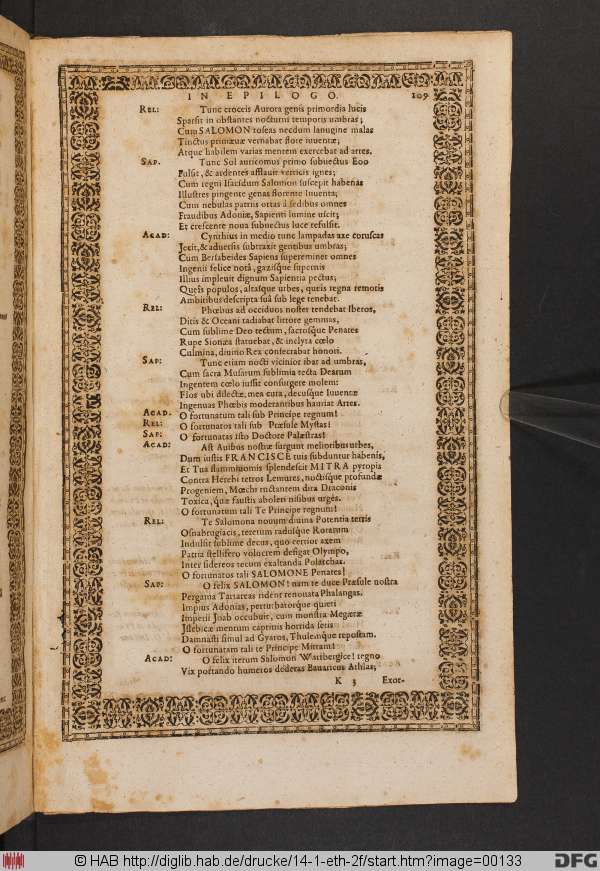 IN EPILOGO. 109
REL: Tunc croceis Aurora genis primordia lucis
Sparsit in obstantes nocturni temporis umbras;
Cum SALOMON roseas necdum lanugine malas
Tinctus primævæ vernabat flore iuventæ;
Atque habilem varias mentem exercebat ad artes.
SAP. Tunc Sol auricomus primo subuectus Eoo
Fulsit, & ardentes afflauit verticis ignes;
Cum regni Isacidum Salomon suscepit habenas
Illustres pingente genas florente Iuuenta;
Cum nebulas patriis ortas â sedibus omnes
Fraudibus Adoniæ, Sapienti lumine vicit;
Et crescente noua subuectus luce refulsit.
ACAD: Cynthius in medio tunc lampadas axe coruscas
Jecit, & aduersis subtraxit gentibus umbras;
Cum Bersabeides Sapiens supereminet omnes
Ingenii felice notâ, gazisque supernis
Illius impleuit dignum Sapientia pectus;
Queîs populos, altasque urbes, queîs regna remotis
Ambitibus descripta suâ sub lege tenebat.
REL: Phœbus ad occiduos noster tendebat Iberos,
Ditis & Oceani radiabat littore gemmas,
Cum sublime Deo tectum, sacrosque Penates
Rupe Sionæa statuebat, & inclyta cœlo
Culmina, diuino Rex consecrabat honori.
SAP: Tunc etiam nocti vicinior ibat ad umbras,
Cum sacra Musarum sublimia tecta Dearum
Ingentem cœlo iussit consurgere molem:
Flos ubi dilectæ, mea cura, decusque Iuuentæ
Ingenuas Phœbis moderantibus hauriat Artes.
ACAD. O fortunatum tali sub Principe regnum!
REL: O fortunatos tali sub Præsule Mystas!
SAP: O fortunatas isto Doctore Palæstras!
ACAD: Ast Auibus nostræ surgunt melioribus urbes,
Dum iustis FRANCISCE tuis subduntur habenis,
Et Tua flammiuomis splendescit MITRA pyropis
Contra Herebi tetros Lemures, noctisque profundæ
Progeniem, Mœchi ructantem dira Draconis
Toxica, quæ faustis abolens nisibus urges.
O fortunatum tali Te Principe regnum!
REL: Te Salomona nouum diuina Potentia terris
Osnabrugiacis, teretum radiisque Rotarum
Indulsit sublime decus, quo tertior axem
Patrii stellifero volucrem desigat Olympo,
Inter sidereos tecum exaltanda Polarchas.
O fortunatos tali SALOMONE Penates!
SAP: O felix SALOMON! nam te duce Præsule nostra
Pergama Tartareas rident renouata Phalangas.
Impius Adonias, perturbatorque quieti
Imperii Joab occubuit, cum monstra Megæræ
Jstebicæ mentum captinis horrida setis
Damnasti simul ad Gyaros, Thulemque repostam.
O fortunatam tali te Principe Mitram!
ACAD: O felix iterum Salomon Wartbergice! regno
Vix postando humeros dederas Bauaricus Athlas;
K 3 Exor-
© HAB http://diglib.hab.de/drucke/14-1-eth-2f/start.htm?image=00133
DFG